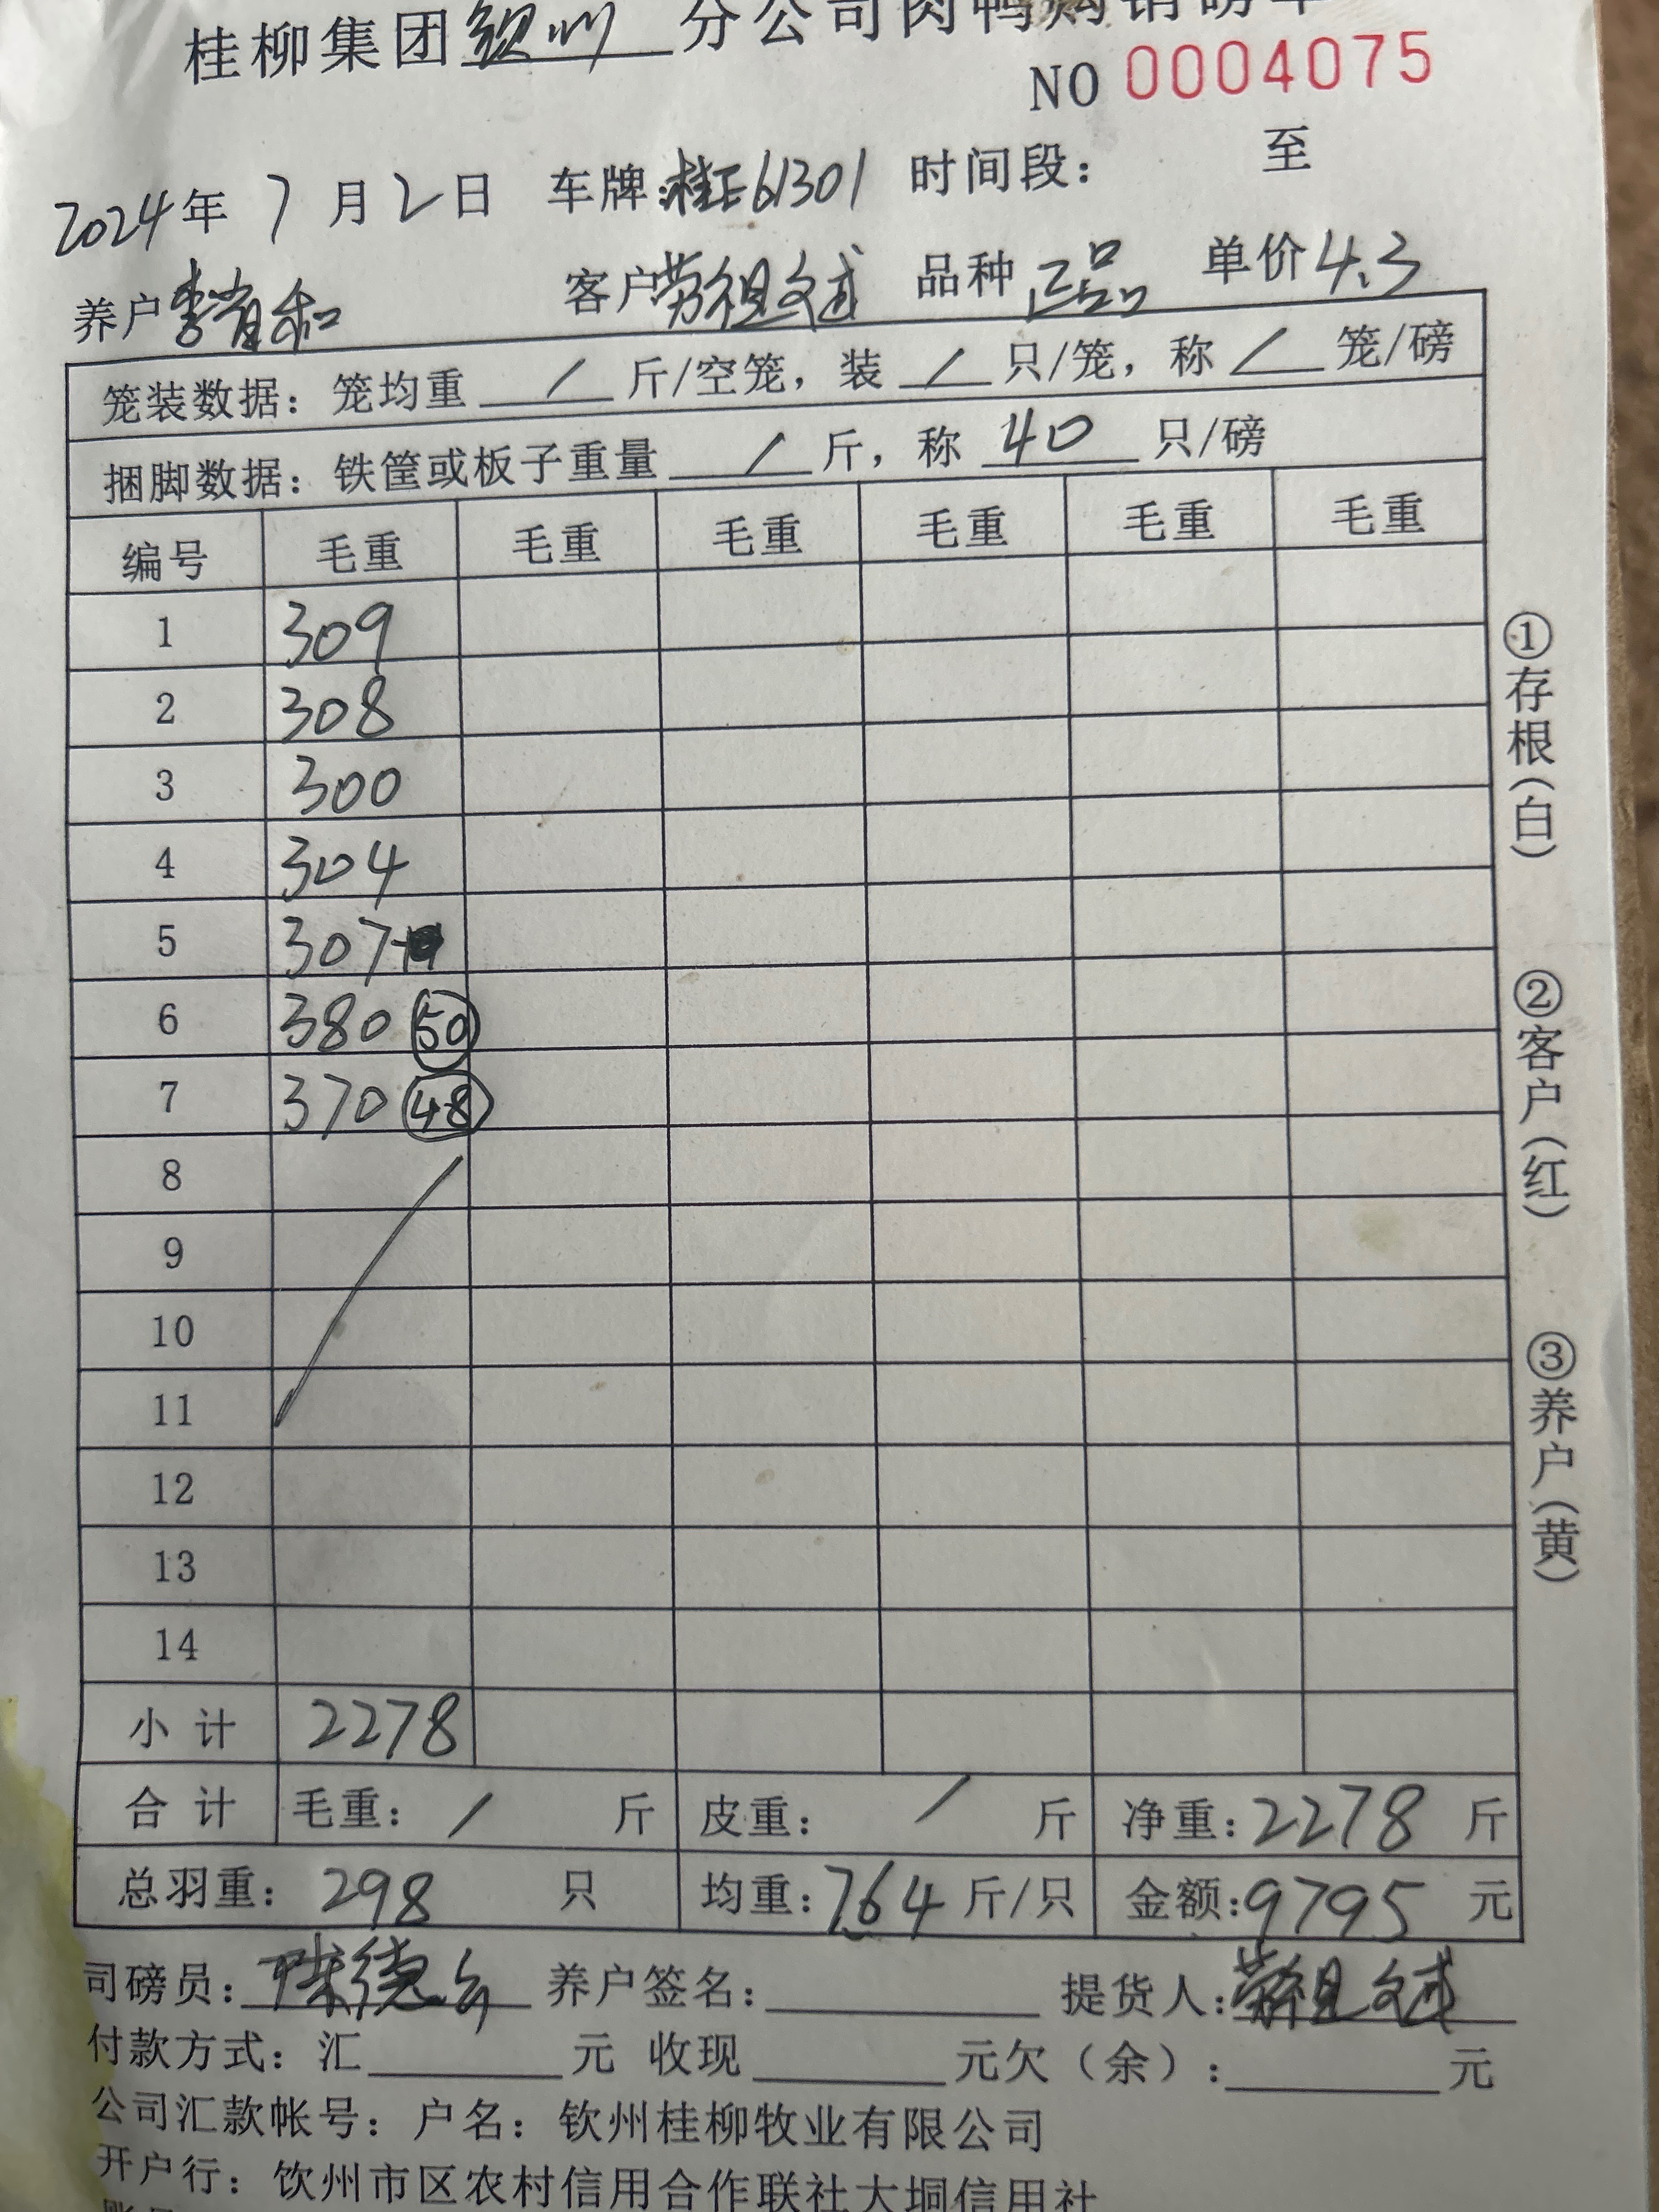 桂柳集团钦州分公司肉鸭购销磅单
NO 0004075
2024年 7月2日 车牌:桂E61301 时间段: 至
养户李肖和 客户劳祖斌 品种正品 单价4.3
笼装数据:笼均重 / 斤/空笼,装 / 只/笼,称 / 笼/磅
捆脚数据:铁筐或板子重量 / 斤,称 40 只/磅
编号 毛重 毛重 毛重 毛重 毛重 毛重
1 309
2 308
3 300
4 304
5 307
6 380 50
7 370 48
8
9
10
11
12
13
14
小 计 2278
合 计 毛重: / 斤 皮重: / 斤 净重:2278 斤
总羽重: 298 只 均重:7.64 斤/只 金额:9795 元
司磅员:陈德 养户签名: 提货人:劳祖斌
付款方式:汇 元 收现 元欠(余): 元
公司汇款帐号:户名:钦州桂柳牧业有限公司
开户行:钦州市区农村信用合作联社大垌信用社
①存根(白)
②客户(红)
③养户(黄)